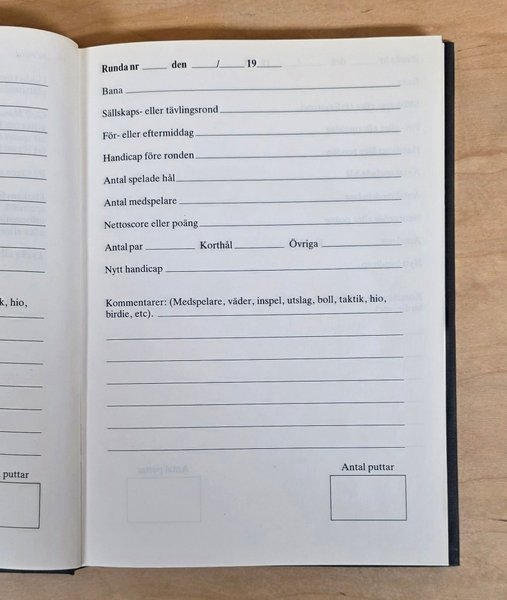 Runda nr ____ den ____/____ 19____
Bana
Sällskaps- eller tävlingsrond
För- eller eftermiddag
Handicap före ronden
Antal spelade hål
Antal medspelare
Nettoscore eller poäng
Antal par ____ Korthål ____ Övriga ____
Nytt handicap
k, hio,
Kommentarer: (Medspelare, väder, inspel, utslag, boll, taktik, hio,
birdie, etc).
puttar
Antal puttar